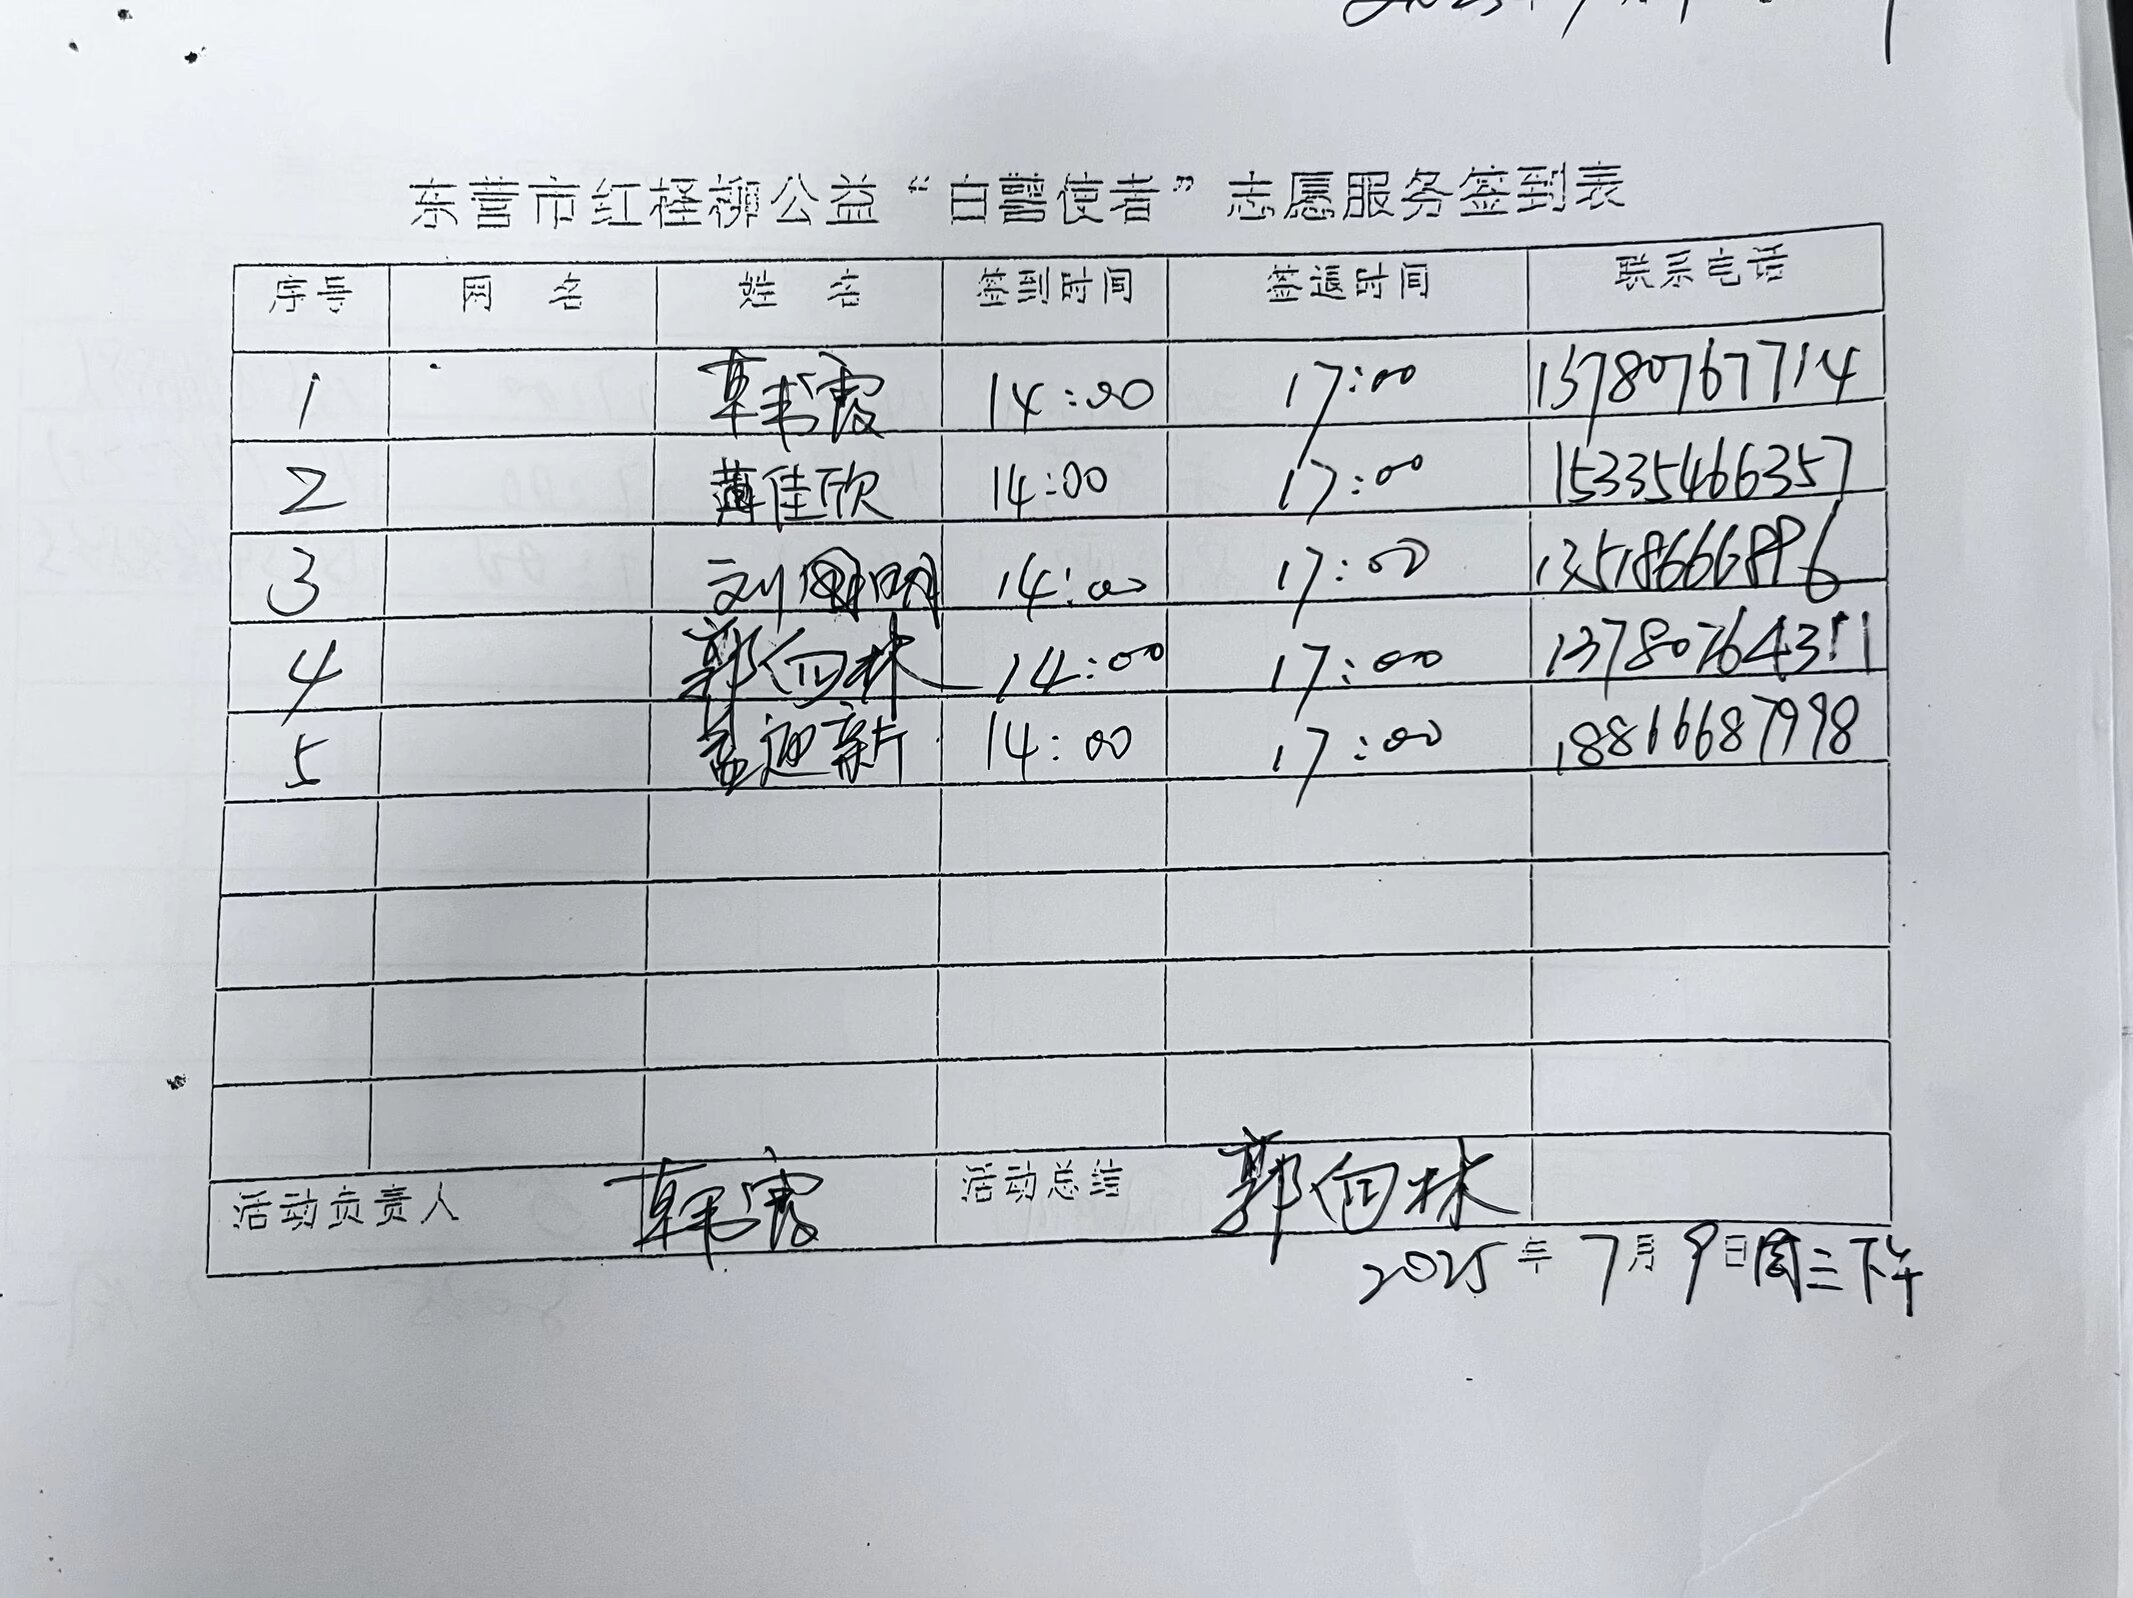 东营市红柽柳公益“白鹭使者”志愿服务签到表
序号 网 名 姓 名 签到时间 签退时间 联系电话
1 14:00 17:00 13780767714
2 薄佳欣 14:00 17:00 15335466357
3 刘国明 14:00 17:00 13518666896
4 郭向林 14:00 17:00 13780764311
5 孟迎新 14:00 17:00 18866687998
活动负责人 活动总结 郭向林
2025年7月9日周三下午